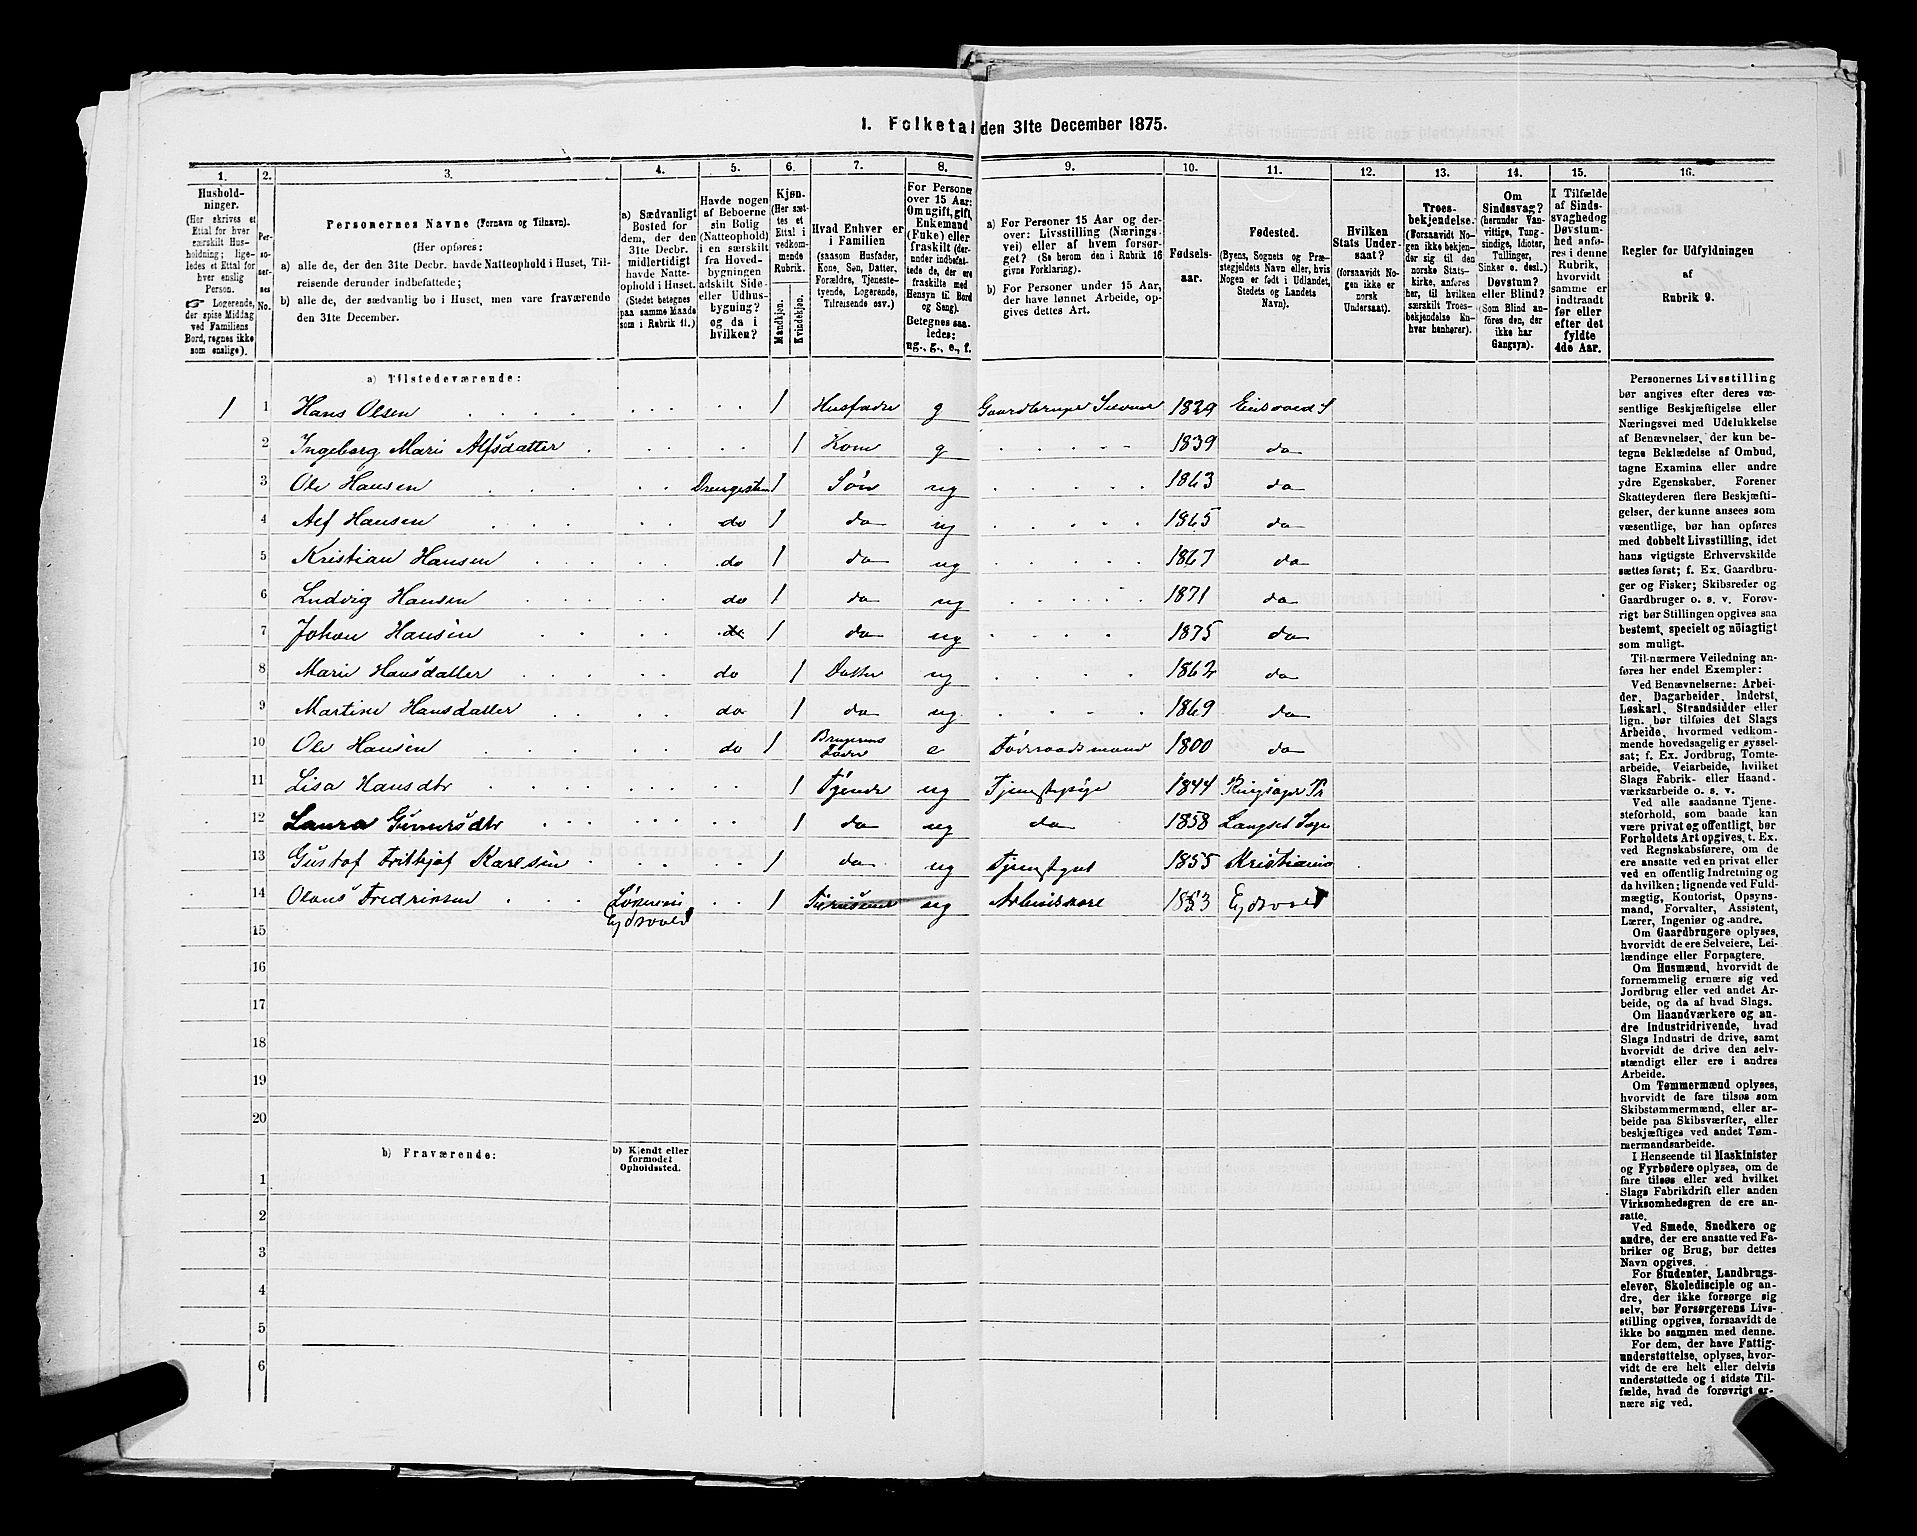 1. Folketal den 31te December 1875.
1. 2. 3. 4. 5. 6. 7. 8. 9. 10. 11. 12. 13. 14. 15. 16.
Hushold-
ninger.
(Her skrives et
Ettal for hver
særskilt Hus-
holdning; lige-
ledes et Ettal for
hver enslig
Person.
☞ Logerende,
der spise Middag
ved Familiens
Bord, regnes ikke
som enslige).
Per-
so-
ner-
nes
No.
Personernes Navne (Fornavn og Tilnavn).
(Her opføres:
a) alle de, der den 31te Decbr. havde Natteophold i Huset, Til-
reisende derunder indbefattede;
b) alle de, der sædvanlig bo i Huset, men vare fraværende
den 31te December.
a) Sædvanligt
Bosted for
dem, der den
31te Decbr.
midlertidigt
havde Natte-
ophold i Huset.
(Stedet betegnes
paa samme Maade
som i Rubrik 11.)
Havde nogen
af Beboerne
sin Bolig
(Natteophold)
i en særskilt
fra Hoved-
bygningen
adskilt Side-
eller Udhus-
bygning?
og da i
hvilken?
Kjøn.
(Her sæt-
tes et
Ettal i
vedkom-
mende
Rubrik.
Mandkjøn.
Kvindekjøn.
Hvad Enhver er
i Familien
(saasom Husfader,
Kone, Søn, Datter,
Forældre, Tjeneste-
tyende, Logerende,
Tilreisende osv.)
For Personer
over 15 Aar:
Om ugift, gift,
Enkemand
(Enke) eller
fraskilt (der-
under indbefat-
tede de, der ere
fraskilte med
Hensyn til Bord
og Seng).
Betegnes saa-
ledes:
ug., g., e., f.
a) For Personer 15 Aar og der-
over: Livsstilling (Nærings-
vei) eller af hvem forsør-
get? (Se herom den i Rubrik 16
givne Forklaring).
b) For Personer under 15 Aar,
der have lønnet Arbeide, op-
gives dettes Art.
Fødsels-
aar.
Fødested.
(Byens, Sognets og Præ-
stegjeldets Navn eller, hvis
Nogen er født i Udlandet,
Stedets og Landets
Navn).
Hvilken
Stats Under-
saat?
(forsaavidt No-
gen ikke er
norsk
Undersaat).
Troes-
bekjendelse.
(Forsaavidt No-
gen ikke bekjen-
der sig til den
norske Stats-
kirke, anføres
her, til hvilken
særskilt Troes-
bekjendelse En-
hver henhører).
Om
Sindssvag?
(herunder Van-
vittige, Tung-
sindige, Idioter,
Tullinger,
Sinker o. desl.)
Døvstum?
eller Blind?
(Som Blind an-
føres den, der
ikke har
Gangsyn).
I Tilfælde
af Sinds-
svaghed og
Døvstum-
hed anfø-
res i denne
Rubrik,
hvorvidt
samme er
indtraadt
før eller
efter det
fyldte
4de Aar.
Regler for Udfyldningen
af
Rubrik 9.
a) Tilstedeværende:
1 1 Hans Olsen 1 Husfader g Gaardbruger Selveier 1829 Eidsvold S
2 Ingeborg Marie Alfsdatter 1 Kone g 1839 do
3 Ole Hansen 1 Søn ug 1863 do
4 Alf Hansen do 1 do ug 1865 do
5 Kristian Hansen do 1 do ug 1867 do
6 Ludvig Hansen do 1 do ug 1871 do
7 Johan Hansen do 1 do ug 1875 do
8 Marie Hansdatter do 1 Datter ug 1862 do
9 Martine Hansdatter do 1 do ug 1869 do
10 Ole Hansen do 1 Brugerens Fader e Føderaadsmand 1800 do
11 Lisa Hansdtr 1 Tyende ug Tjenestepige 1844 Ringsager Pr
12 Laura Gunersdtr 1 do ug do 1858 Langset Sogn
13 Gustaf Frithjof Karlsen 1 do ug Tjenestgut 1855 Kristiania
14 Olaus Fredriksen Eydsvold 1 ug 1853 Eydsvold
15
16
17
18
19
20
b) Fraværende:
b) Kjendt eller
formodet
Opholdssted.
1
2
3
4
5
6
Personernes Livsstilling
bør angives efter deres væ-
sentlige Beskjæftigelse eller
Næringsvei med Udelukkelse
af Benævnelser, der kun be-
tegne Beklædelse af Ombud,
tagne Examina eller andre
ydre Egenskaber. Forener
Skatteyderen flere Beskjæfti-
gelser, der kunne ansees som
væsentlige, bør han opføres
med dobbelt Livsstilling, idet
hans vigtigste Erhvervskilde
sættes først; f. Ex. Gaardbru-
ger og Fisker; Skibsreder og
Gaardbruger o. s. v. Forøv-
rigt bør Stillingen opgives saa
bestemt, specielt og nöiagtigt
som muligt.
Til nærmere Veiledning an-
føres her endel Exempler:
Ved Benævnelserne: Arbei-
der Dagarbeider, Inderst,
Løskarl, Strandsidder eller
lign. bør tilføies det Slags
Arbeide, hvormed vedkom-
mende hovedsagelig er syssel-
sat; f. Ex. Jordbrug, Tomte-
arbeide, Veiarbeide, hvilket
Slags Fabrik- eller Haand-
værksarbeide o. s. v.
Ved alle saadanne Tjene-
steforhold, som baade kan
være privat og offentligt, bør
Forholdets Art opgives, t. Ex.
ved Regnskabsførere, om de
ere ansatte ved en privat eller
ved en offentlig Indretning og
da hvilken; lignende ved Fuld-
mægtig, Kontorist, Opsyns-
mand, Forvalter, Assistent,
Lærer, Ingeniør og andre.
Om Gaardbrugere oplyses,
hvorvidt de ere Selveiere, Lei-
lændinge eller Forpagtere.
Om Husmænd, hvorvidt de
fornemmelig ernære sig ved
Jordbrug eller ved andet Ar-
beide, og da af hvad Slags.
Om Haandværkere og an-
dre Industridrivende, hvad
Slags Industri de drive, samt
hvorvidt de drive den selv-
stændigt eller ere i andres
Arbeide.
Om Tømmermænd oplyses,
hvorvidt de fare tilsøs som
Skibstømmermænd, eller ar-
beide paa Skibsværfter, eller
beskjæftiges ved andet Tøm-
mermandsarbeide.
I Henseende til Maskinister
og Fyrbødere oplyses, om de
fare tilsøs eller ved hvilket
Slags Fabrikdrift eller anden
Virksomhedsgren de ere an-
satte.
Ved Smede, Snedkere og
andre, der ere ansatte ved Fa-
briker og Brug, bør dettes
Navn opgives.
For Studenter, Landbrugs-
elever, Skoledisciple og an-
dre, der ikke forsørge sig
selv, bør Forsørgerens Livs-
stilling opgives, forsaavidt de
ikke bo sammen med denne.
For dem, der have Fattig-
understøttelse, oplyses, hvor-
vidt de ere helt eller delvis
understøttede og i sidste Til-
fælde, hvad de forøvrigt er-
nære sig ved.